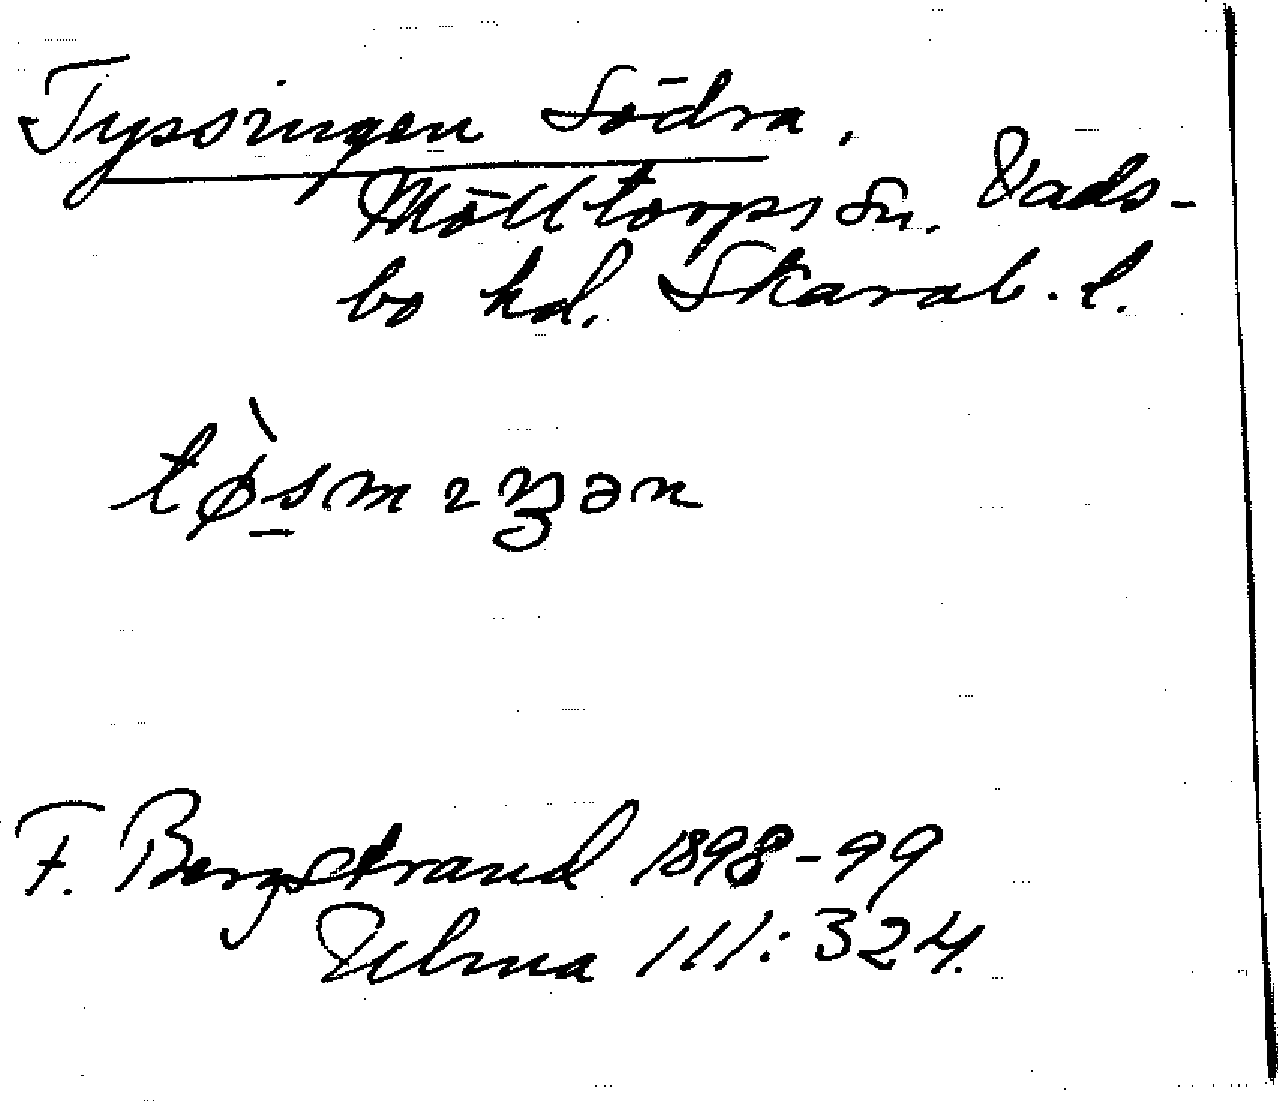 Tyssringen Södra.
Mölltorps sn. Vads-
bo hd. Skarab. l.
F. Bergstrand 1898-99
Ulma 111:324.